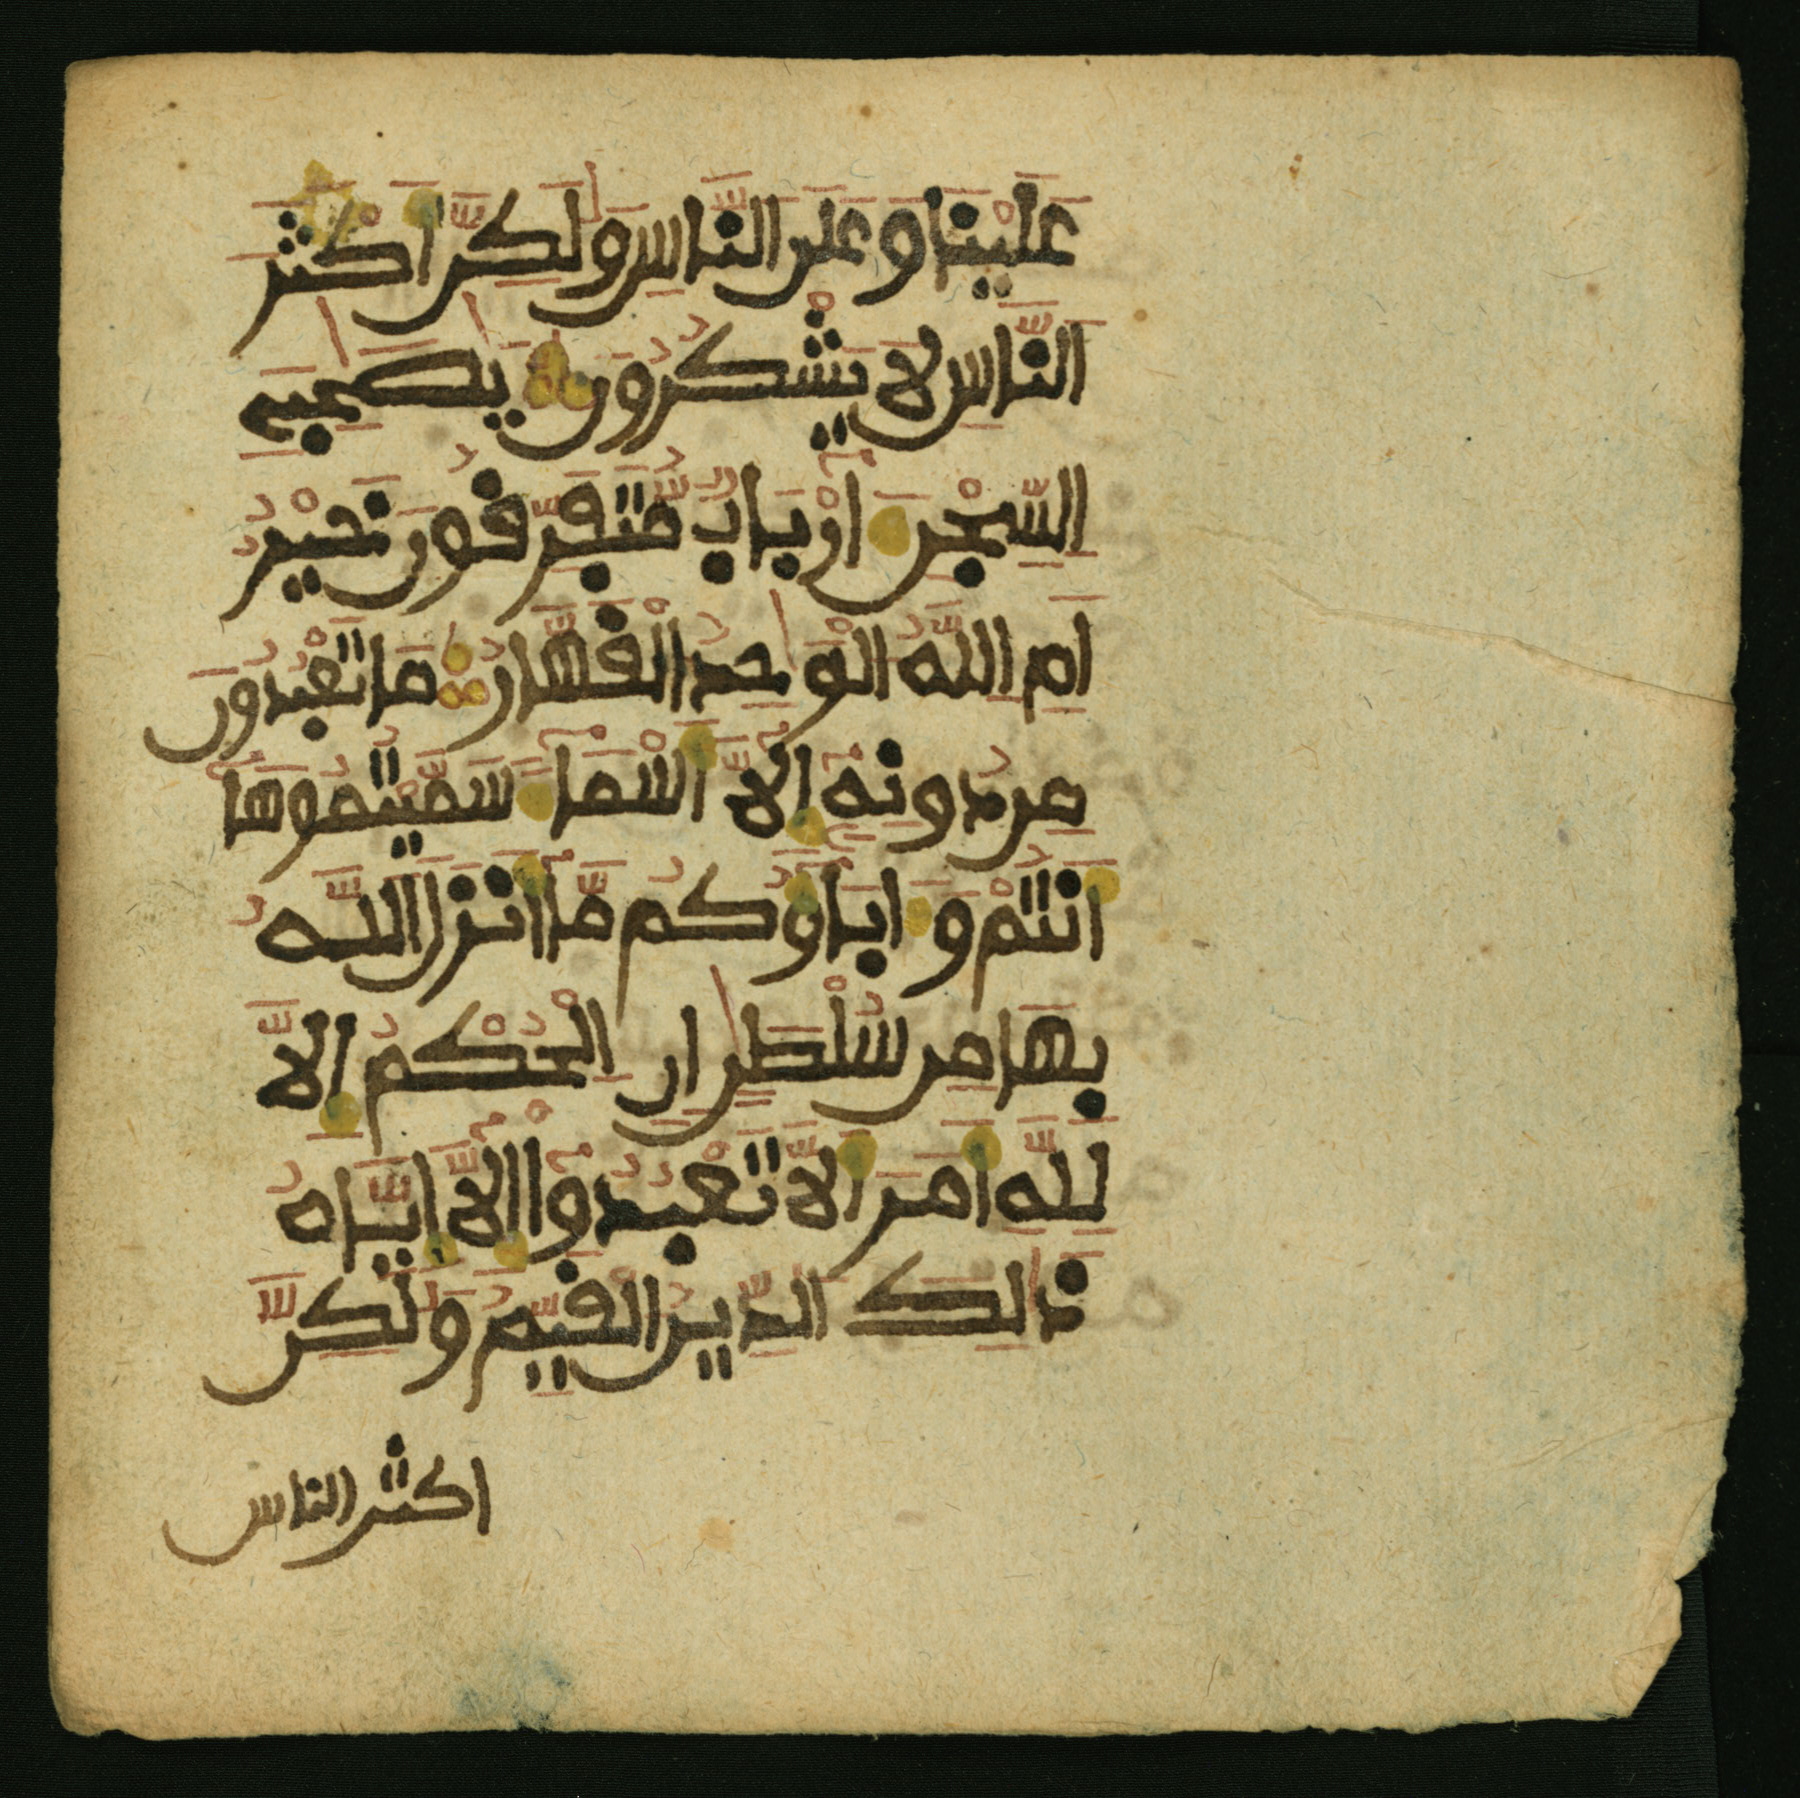 عَلَيْنَا وَعَلَى النَّاسِ وَلَٰكِنَّ أَكْثَرَ
النَّاسِ لَا يَشْكُرُونَ يَٰصَٰحِبَيِ
السِّجْنِ ءَأَرْبَابٌ مُّتَفَرِّقُونَ خَيْرٌ
أَمِ اللَّهُ الْوَٰحِدُ الْقَهَّارُ مَا تَعْبُدُونَ
مِن دُونِهِ إِلَّا أَسْمَاءً سَمَّيْتُمُوهَا
أَنتُمْ وَءَابَاؤُكُم مَّا أَنزَلَ اللَّهُ
بِهَا مِن سُلْطَٰنٍ إِنِ الْحُكْمُ إِلَّا
لِلَّهِ أَمَرَ أَلَّا تَعْبُدُوا إِلَّا إِيَّاهُ
ذَٰلِكَ الدِّينُ الْقَيِّمُ وَلَٰكِنَّ
اكثر الناس